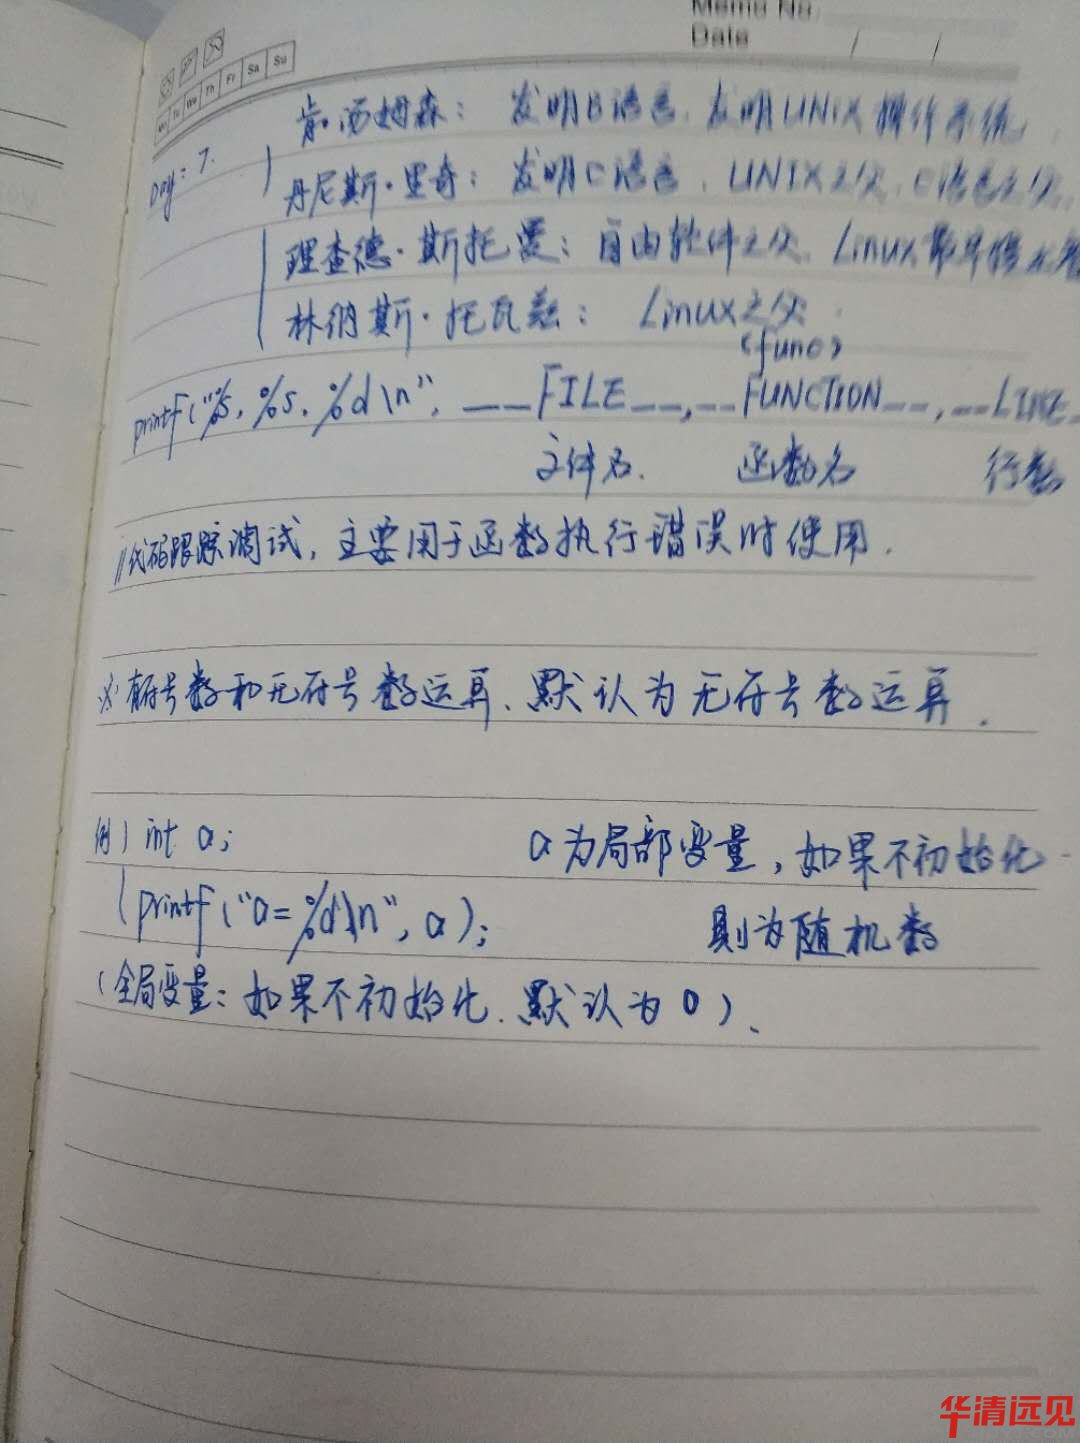 Memo No.
Date / /
Mo Tu We Th Fr Sa Su
Day: 7.
肯·汤姆森: 发明B语言, 发明UNIX操作系统
丹尼斯·里奇: 发明C语言, UNIX之父, C语言之父,
理查德·斯托曼: 自由软件之父, Linux
林纳斯·托瓦兹: Linux之父.
(func)
printf("%s, %s, %d\n", __FILE__, __FUNCTION__, __LINE__
文件名. 函数名 行数
//代码跟踪调试, 主要用于函数执行错误时使用.
※ 有符号数和无符号数运算、默认为无符号数运算.
例) int a; a为局部变量, 如果不初始化
printf("a=%d\n", a); 则为随机数
(全局变量: 如果不初始化. 默认为0)、
华清远见